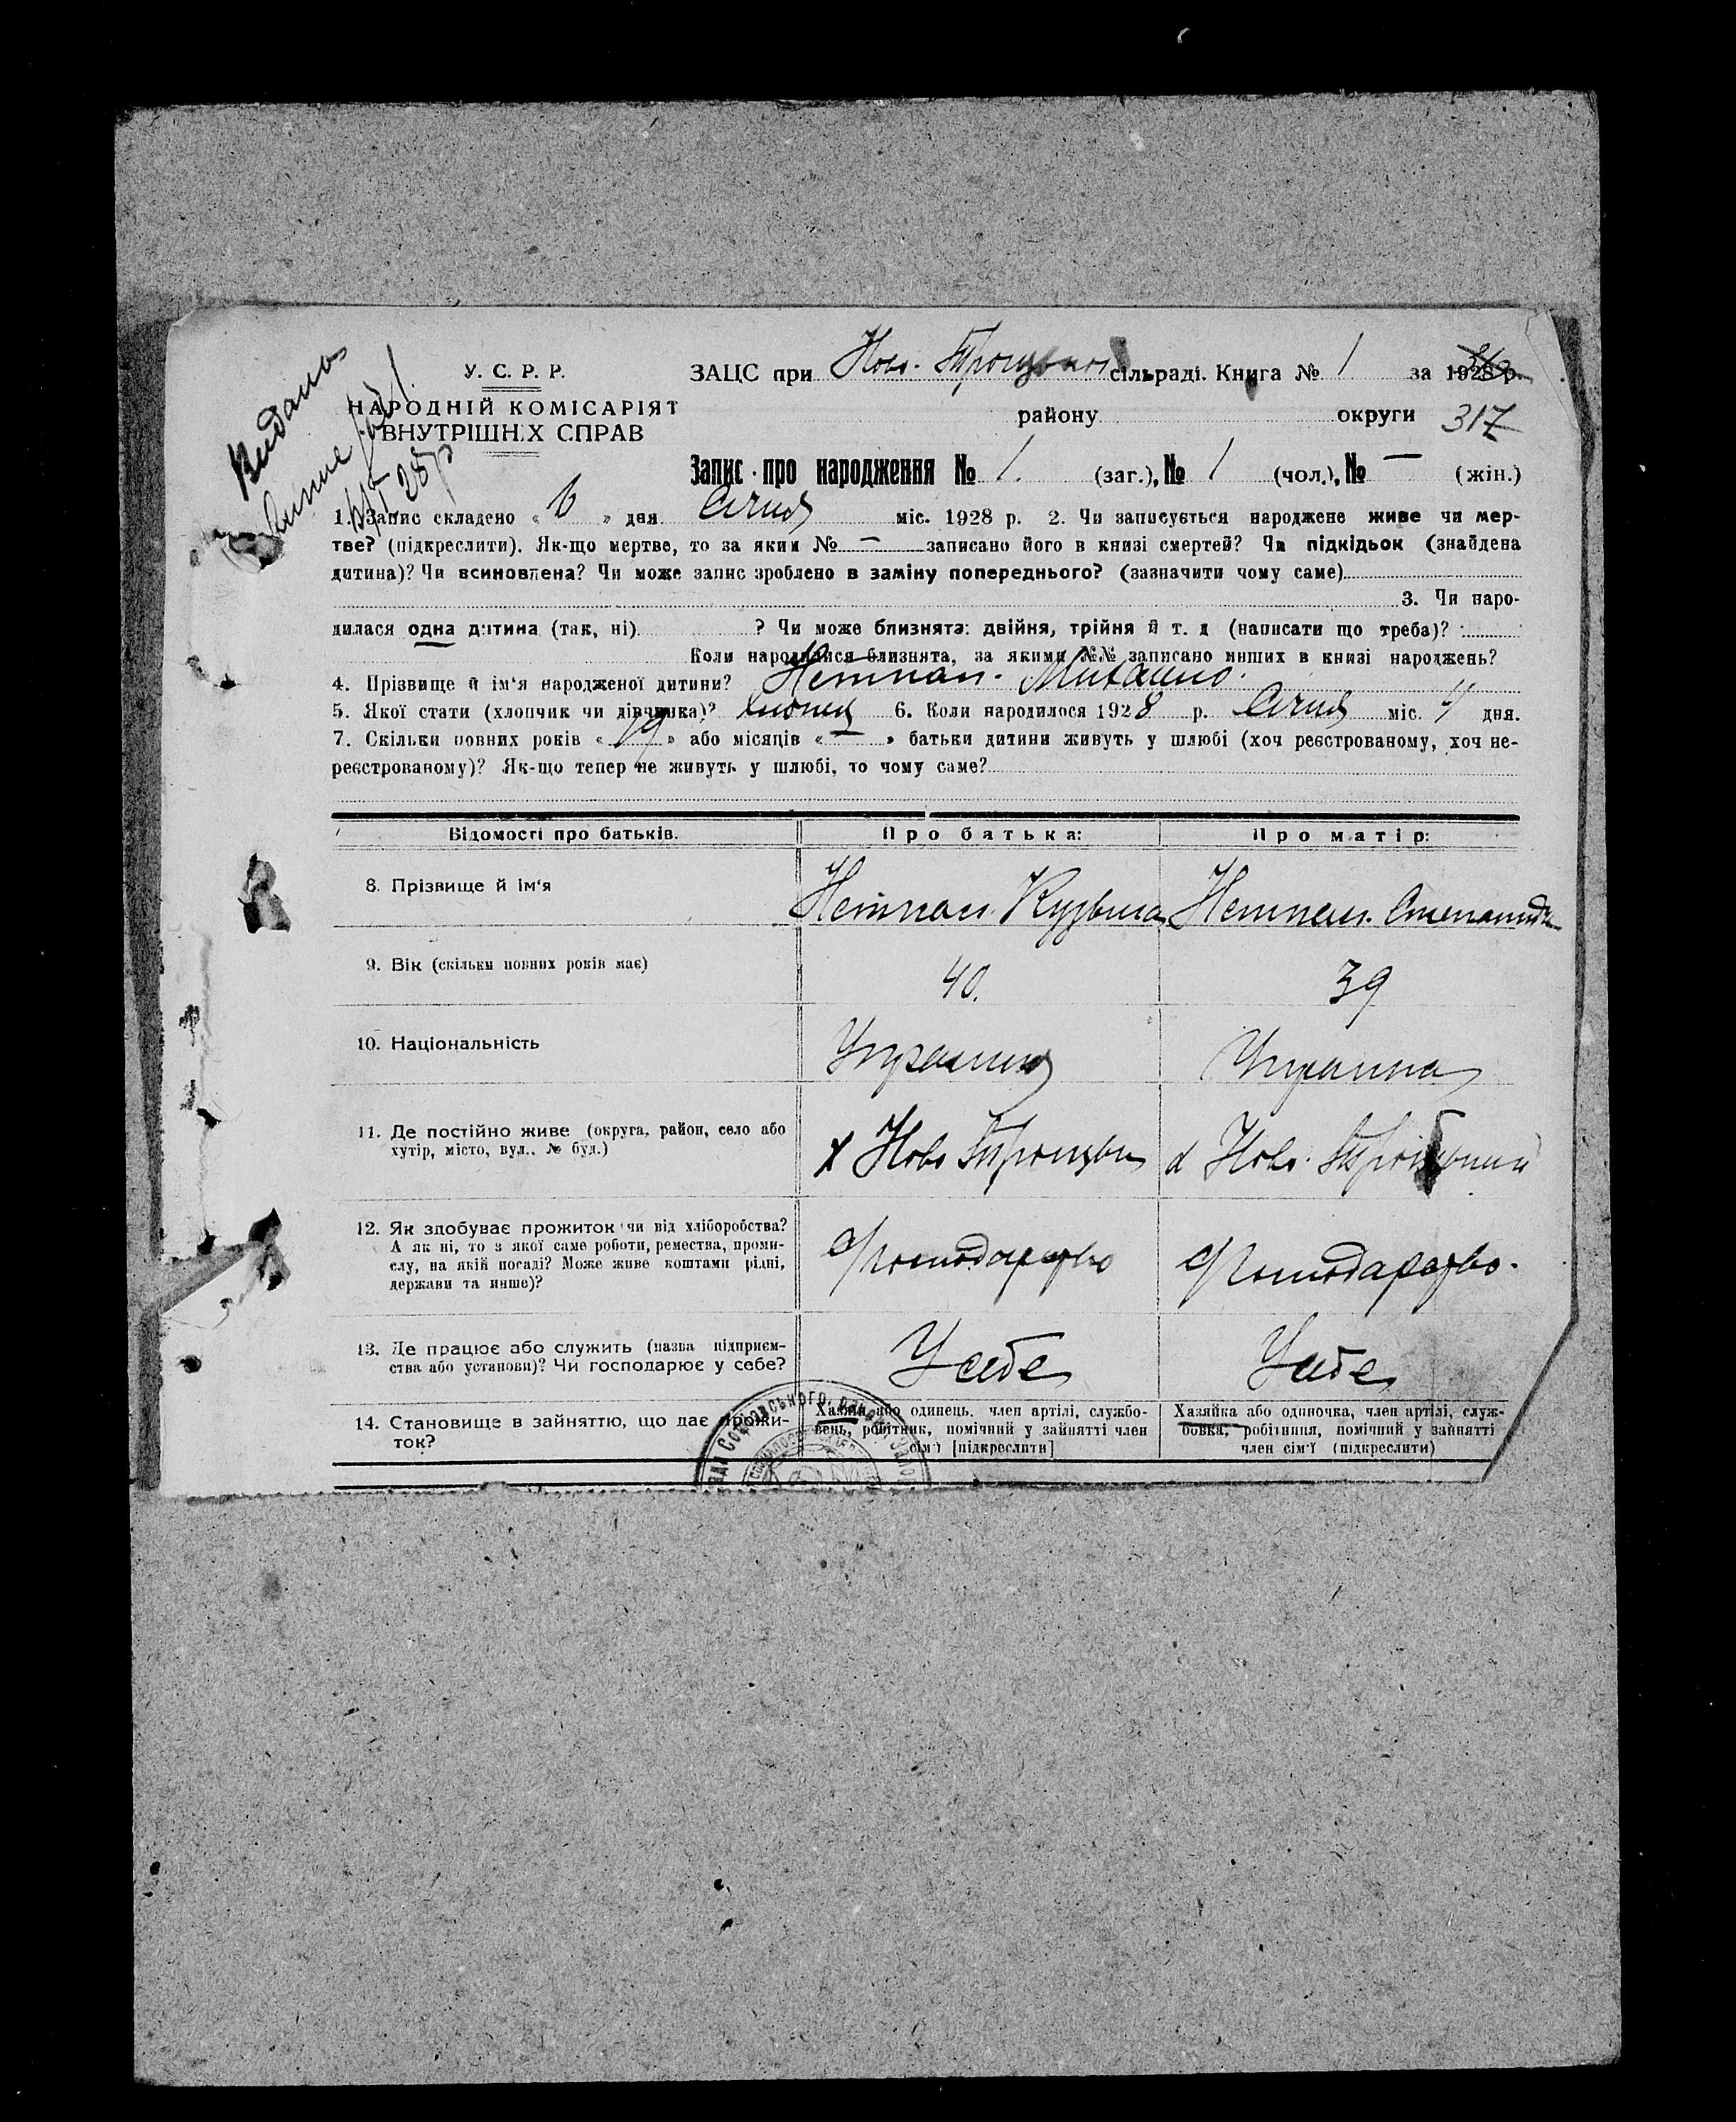 Видано
У. С. Р. Р.
НАРОДНІЙ КОМІСАРІЯТ
ВНУТРІШНІХ СПРАВ
ЗАЦС при Ново-Троицькій сільраді. Книга № 1 за 1928 р.
району округи 317
Запис про народження № 1. (заг.), № 1 (чол.), № — (жін.)
1. Запис складено « 6 » дня Січня міс. 1928 р. 2. Чи записується народжене живе чи мер-
тве? (підкреслити). Як-що мертве, то за яким № — записано його в книзі смертей? Чи підкідьок (знайдена
дитина)? Чи всиновлена? Чи може запис зроблено в заміну попереднього? (зазначити чому саме)
3. Чи наро-
дилася одна дитина (так, ні) ? Чи може близнята: двійня, трійня й т. д (написати що треба)?
Коли народилися близнята, за якими №№ записано инших в книзі народжень?
4. Прізвище й ім'я народженої дитини? Михайло.
5. Якої стати (хлопчик чи дівчинка)? хлопец 6. Коли народилося 1928 р. Січня міс. 4 дня.
7. Скільки повних років « 19 » або місяців « — » батьки дитини живуть у шлюбі (хоч реєстрованому, хоч не-
реєстрованому)? Як-що тепер не живуть у шлюбі, то чому саме?
Відомості про батьків. Про батька: Про матір:
8. Прізвище й ім'я Кузьма Степанида
9. Вік (скільки повних років має) 40. 39
10. Національність Українец Українка
11. Де постійно живе (округа, район, село або
хутір, місто, вул., № буд.) х Ново Троицьк х Ново
12. Як здобуває прожиток чи від хліборобства?
А як ні, то з якої саме роботи, ремества, проми-
слу, на якій посаді? Може живе коштами рідні,
держави та инше)? Господарство Господарство.
13. Де працює або служить (назва підприєм-
ства або установи)? Чи господарює у себе? У себе У себе
14. Становище в зайняттю, що дає прожи-
ток?
Хазяїн або одинець, член артілі, службо-
вець, робітник, помічний у зайнятті член
сім'ї [підкреслити]
Хазяйка або одиночка, член артілі, служ-
бовка, робітниця, помічний у зайнятті
член сім'ї (підкреслити)